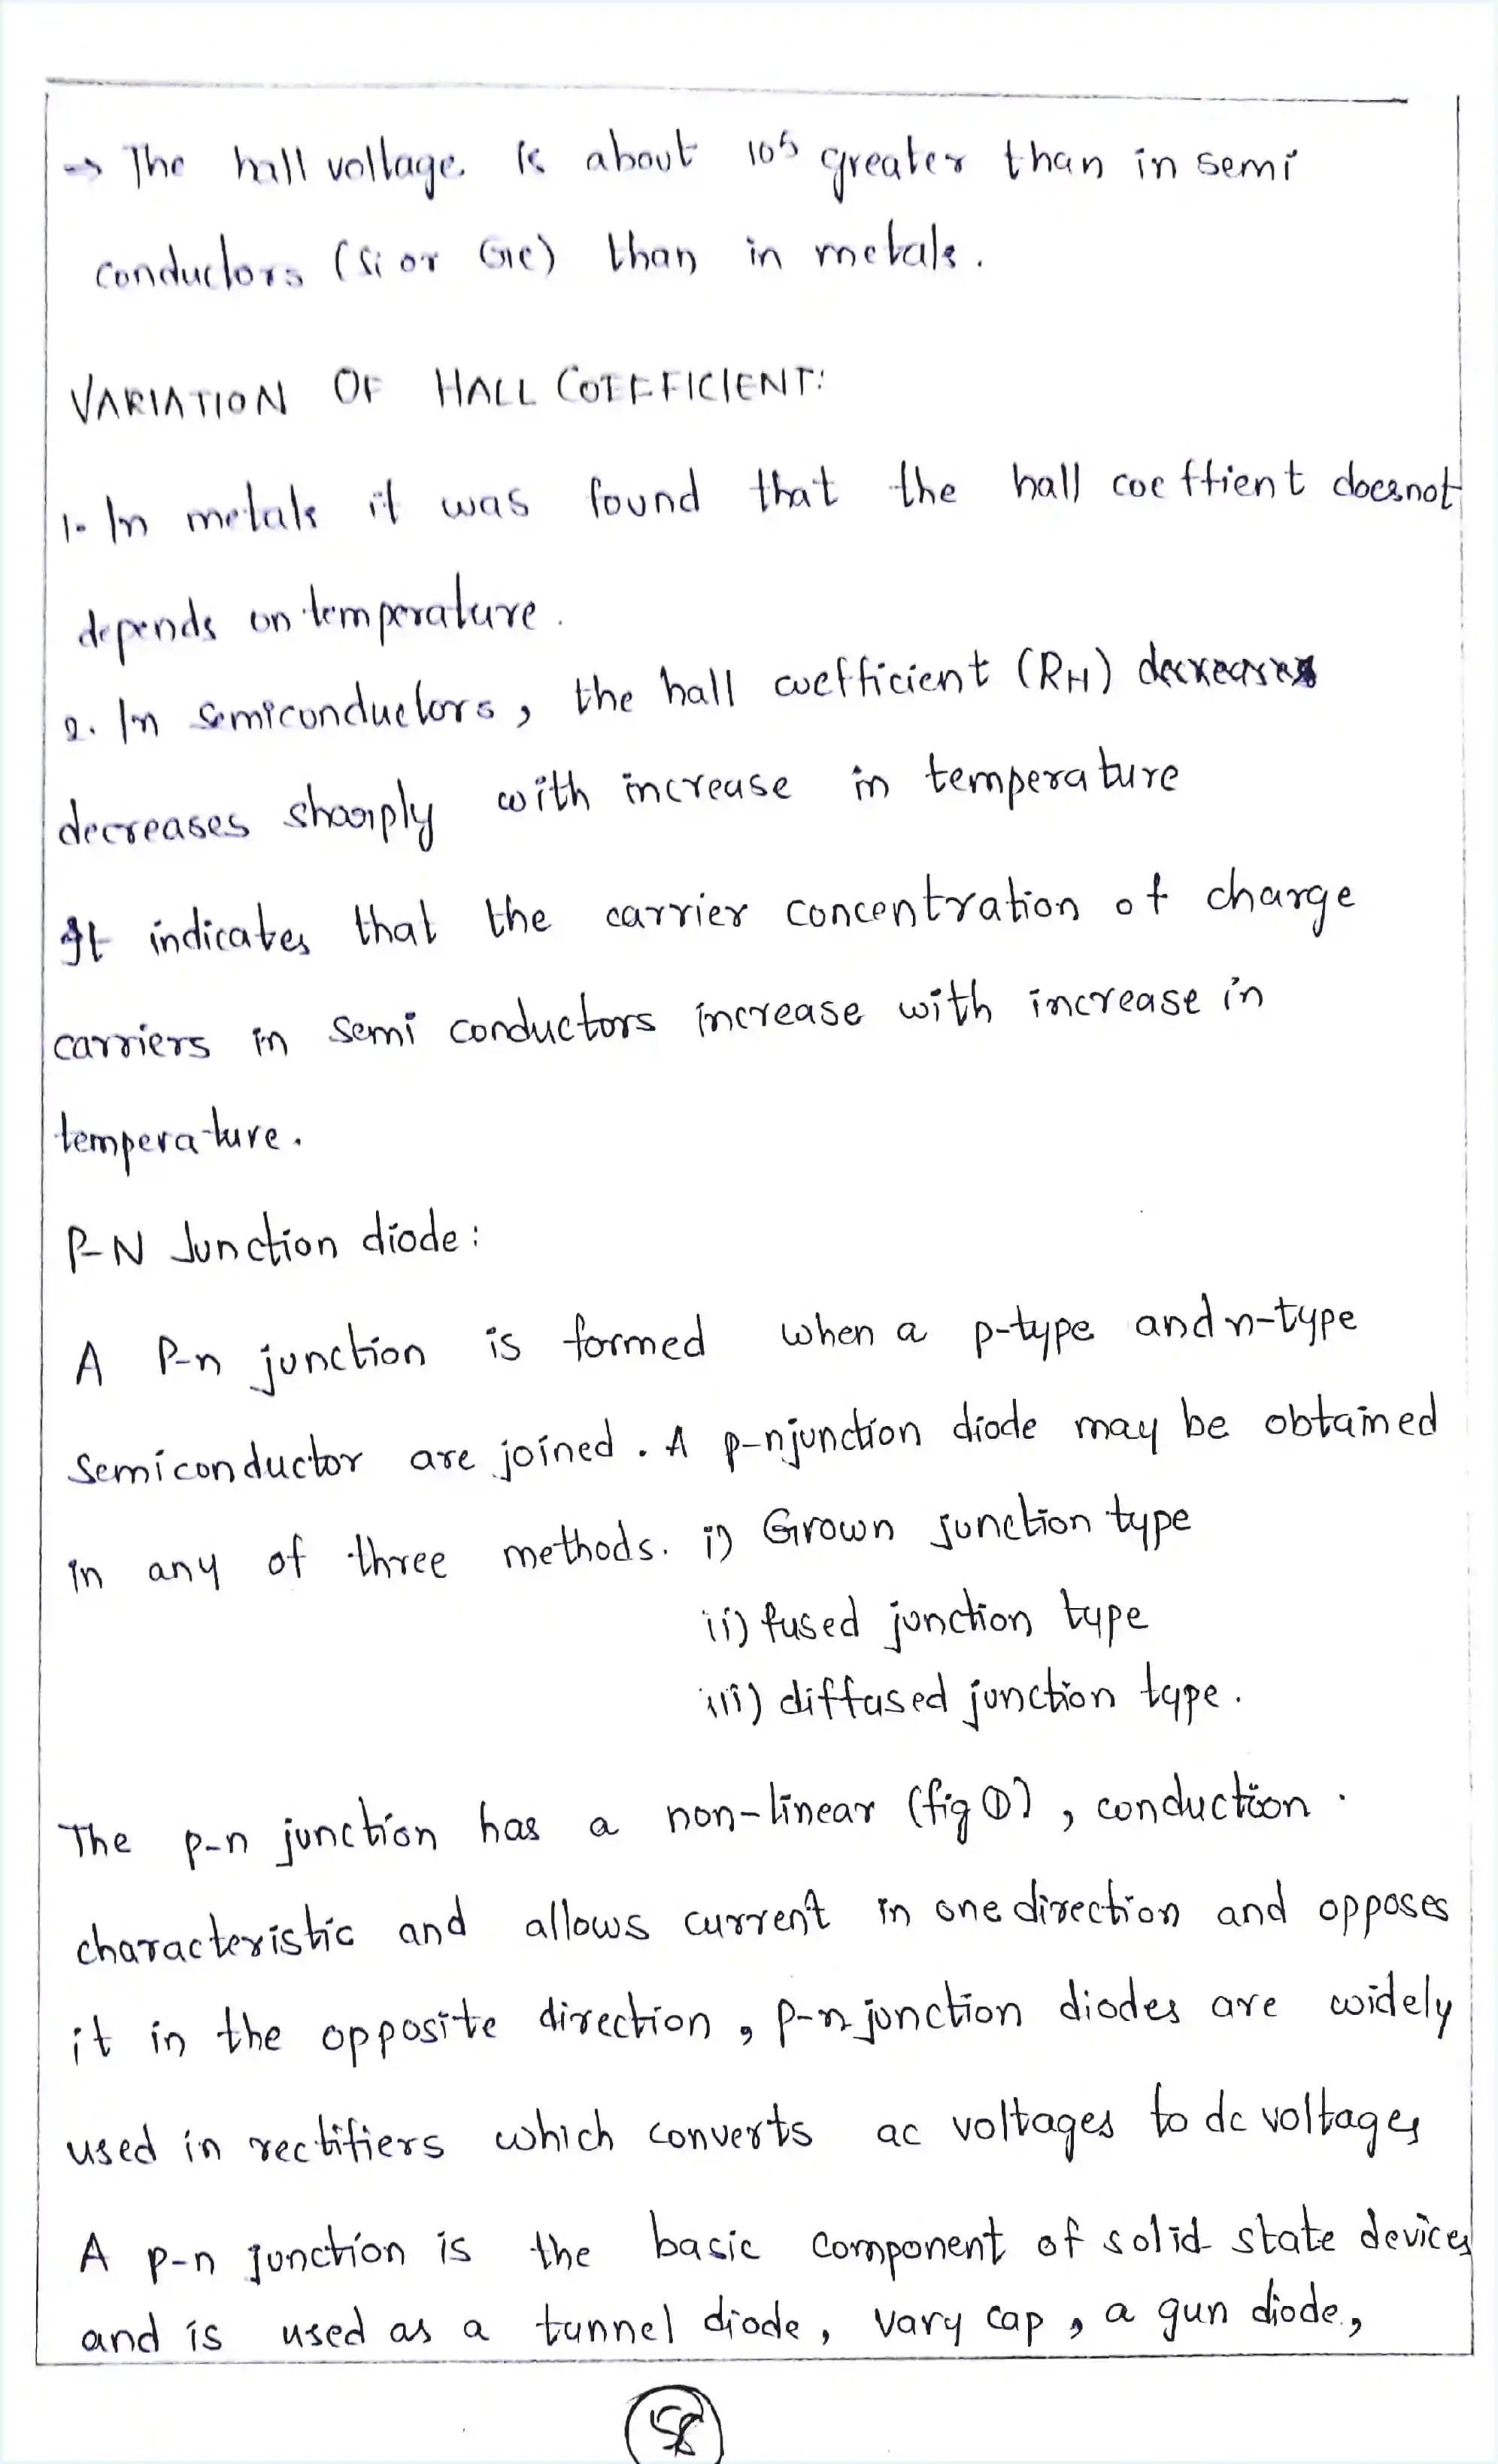 → The hall voltage is about 10⁵ greater than in semi
conductors (Si or Ge) than in metals.
VARIATION OF HALL COEFFICIENT:
1. In metals it was found that the hall coeffient doesnot
depends on temperature.
2. In semiconductors, the hall coefficient (RH) decreases
decreases sharply with increase in temperature
It indicates that the carrier concentration of charge
carriers in semi conductors increase with increase in
temperature.
P-N Junction diode:
A P-n junction is formed when a p-type and n-type
semiconductor are joined. A p-n junction diode may be obtained
in any of three methods. i) Grown junction type
ii) fused junction type
iii) diffused junction type.
The p-n junction has a non-linear (fig ①), conduction.
characteristic and allows current in one direction and opposes
it in the opposite direction, p-n junction diodes are widely
used in rectifiers which converts ac voltages to dc voltages
A p-n junction is the basic component of solid state devices
and is used as a tunnel diode, vary cap, a gun diode,